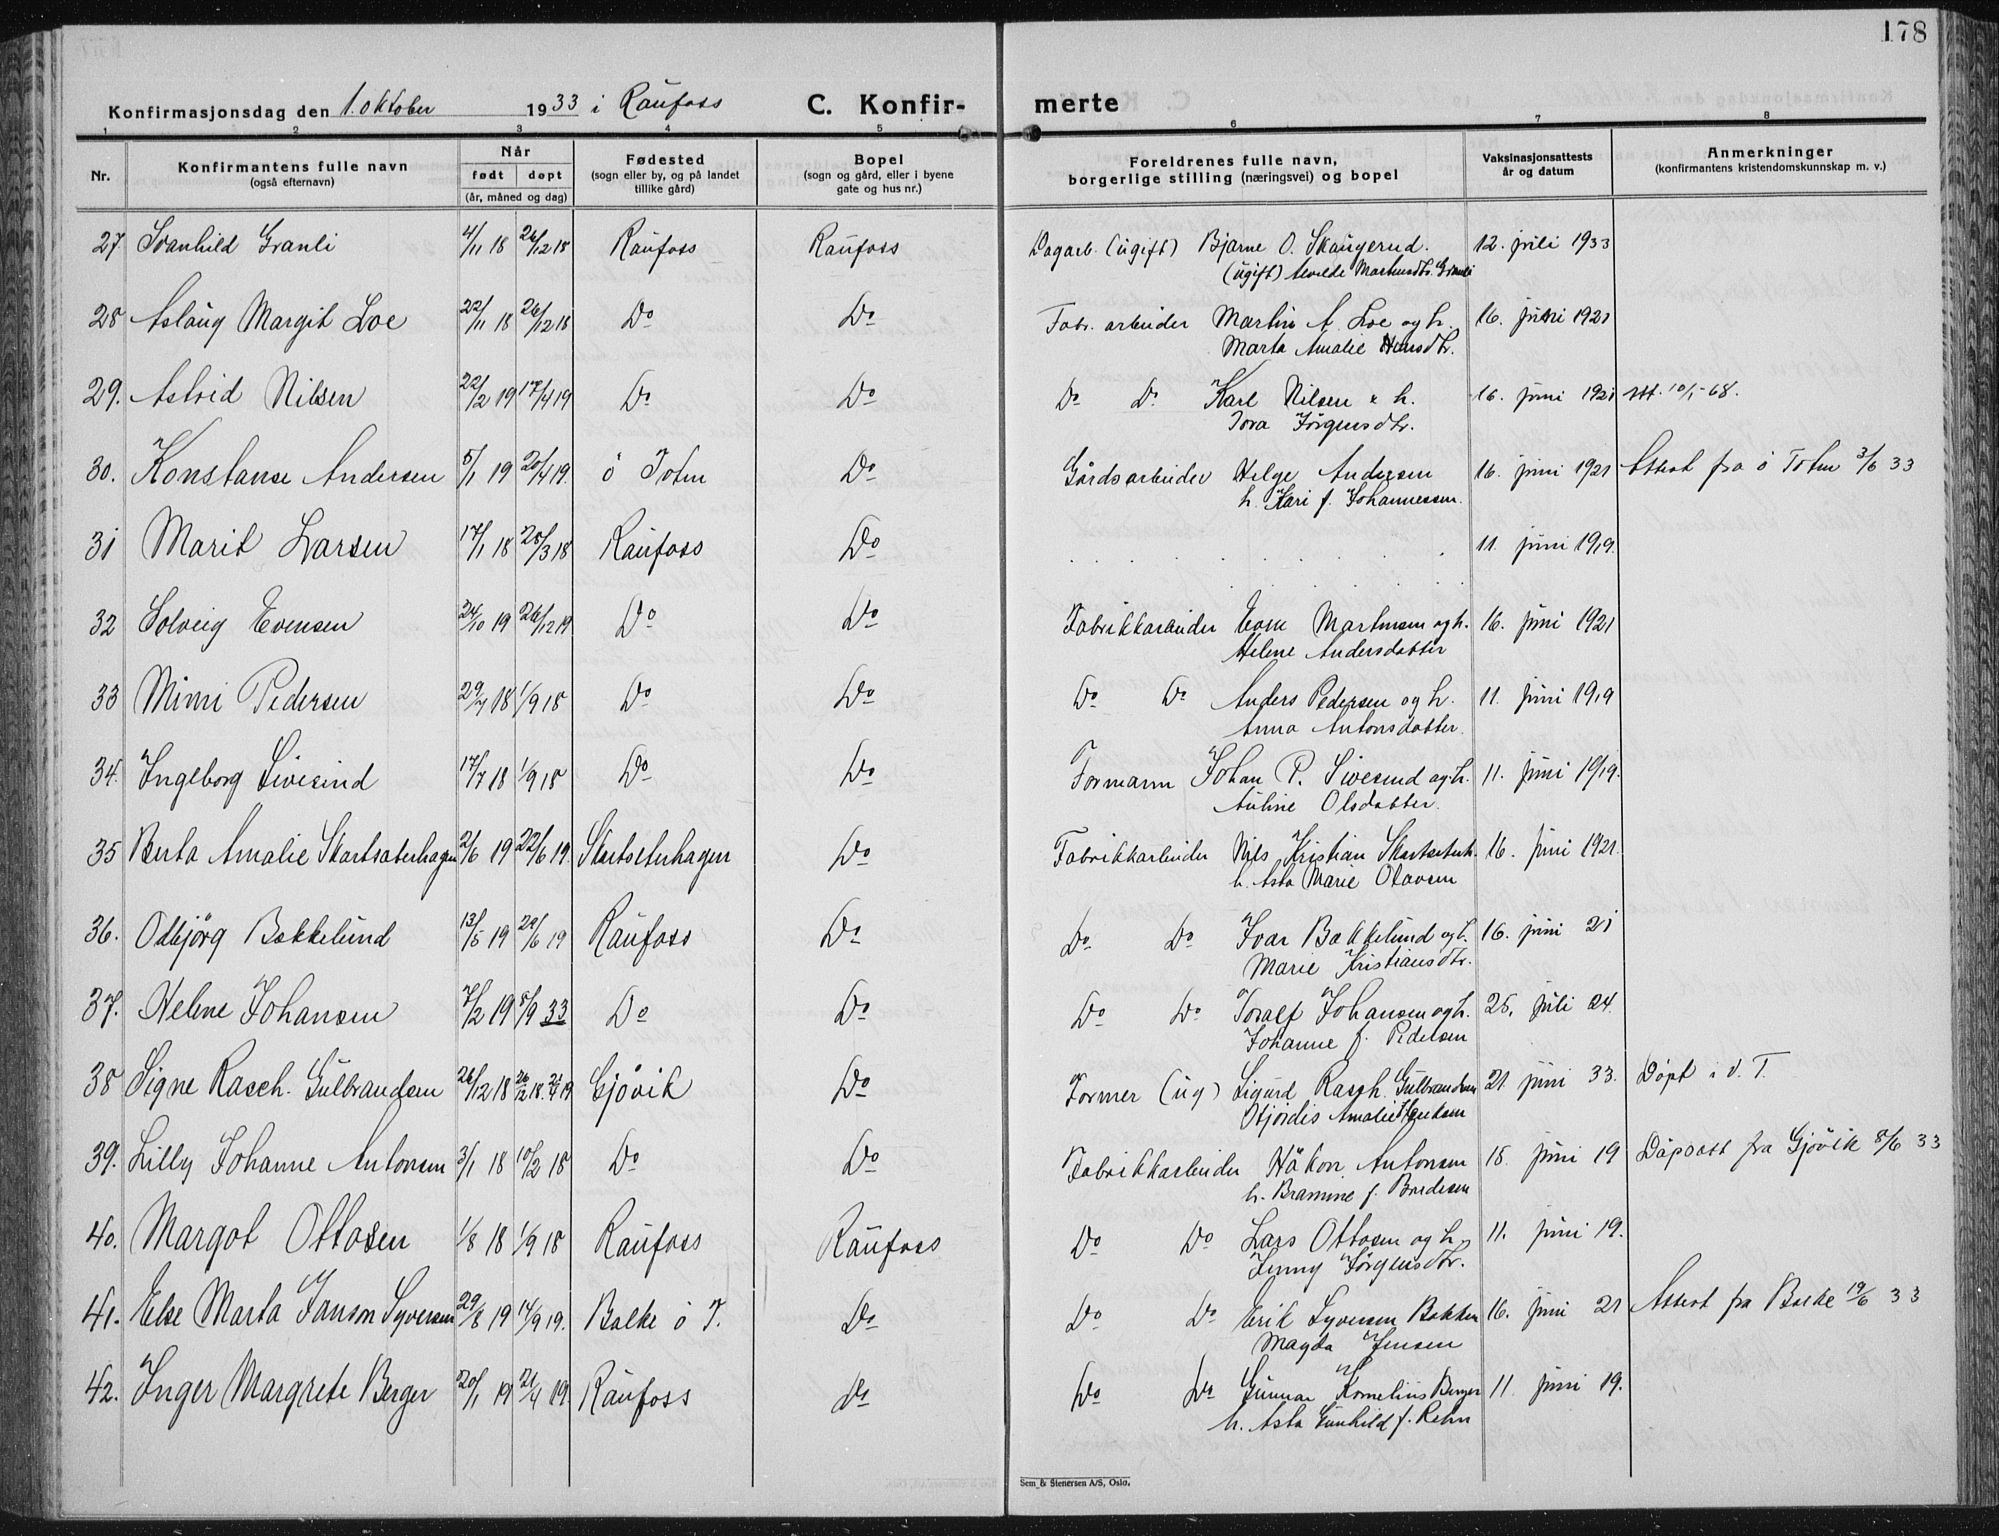 178
Konfirmasjonsdag den 1. oktober 1933 i Raufoss C. Konfir- merte
1 2 3 4 5 6 7 8
Nr. Konfirmantens fulle navn (også efternavn) Når født døpt (år, måned og dag) Fødested (sogn eller by, og på landet tillike gård) Bopel (sogn og gård, eller i byene gate og hus nr.) Foreldrenes fulle navn, borgerlige stilling (næringsvei) og bopel Vaksinasjonsattests år og datum Anmerkninger (konfirmantens kristendomskunnskap m. v.)
27 Svanhild Granli 4/11 18 26/12 18 Raufoss Raufoss Dagarb. (ugift) Bjarne O. Skaugerud. 12. juli 1933
(ugift) Alvilde Martinsdtr. Granli
28 Aslaug Margit Loe 22/11 18 26/12 18 Do Do Fabr. arbeider Martin A. Loe og h. 16. juni 1921
Marta Amalie Hansdtr.
29. Astrid Nilsen 22/2 19 17/4 19 Do Do Do Do Karl Nilsen & h. 16. juni 1921 Att. 10/1-68.
Tora Jörgensdtr.
30. Konstanse Andersen 5/1 19 20/4 19. ö Totn Do Gårdsarbeider Helge Andersen 16. juni 1921 Attest fra ö Totn 3/6 33
h. Kari f. Johannessen.
31 Marit Larsen 17/1 18 28/3 18 Raufoss Do . . . . . . . 11. juni 1919.
32 Solveig Evensen 24/10 19 26/12 19 Do Do Fabrikkarbeider Even Martinsen og h. 16. juni 1921
Helene Andersdatter
33 Mimi Pedersen 29/4 18 1/9 18 Do Do Do Do Anders Pedersen og h. 11. juni 1919
Anna Antonsdatter.
34. Ingeborg Sivesind 17/7 18 1/9 18 Do Do Formann Johan P. Sivesind og h. 11. juni 1919.
Auline Olsdatter.
35 Berta Amalie Skartsæterhagen 2/6 19 22/6 19. Skartseterhagen Do Fabrikkarbeider Nils Kristian Skartseterh. 16. juni 1921.
h. Asta Marie Olavsen
36. Odbjörg Bakkelund 13/5 19 29/6 19 Raufoss Do Do Do Ivar Bakkelund og h. 16. juni 21
Marie Kristiansdtr.
37. Helene Johansen 7/2 19 5/9 33 Do Do Do Do Toralf Johansen og h. 25. juli 24.
Johanne f. Pedersen
38 Signe Rasch. Gulbrandsen 26/12 18 26/12 18. 21/4 19 Gjövik Do Former (ug) Sigurd Rasch. Gulbrandsen 21 juni 33. Döpt i V. T.
Hjördis Amalie
39. Lilly Johanne Antonsen 3/1 18 10/2 18 Do Do Fabrikkarbeider Håkon Antonsen 18. juni 19 Dåpsatt fra Gjövik 8/6 33
h. Bramine f. Bredesen
40. Margot Ottosen 1/8 18 1/9 18 Raufoss Raufoss Do Do Lars Ottosen og h. 11. juni 19.
Jenny Jörgensdtr.
41. Else Marta Janson Syversen 29/8 19 14/9 19. Balke ö T. Do Do Do Erik Syversen Bakken 16. juni 21 Attest fra Balke 19/6 33
Magda Jensen
42. Inger Margrete Berger 20/1 19 21/4 19. Raufoss Do Do Do Gunnar Kornelius Berger 11. juni 19.
h. Asta Gunhild f. Rehn
Sem & Stenersen A/S, Oslo.